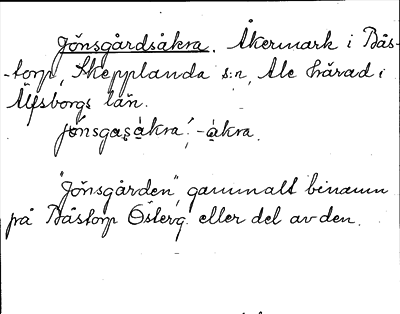 Jönsgårdsåkra. Åkermark i Bås-
-torp, Skepplanda s:n, Ale härad i
Älfsborgs län.
jönsgaṣ åkra, -åkra.
"Jönsgården", gammalt binamn
på Båstorp Österg. eller del av den.